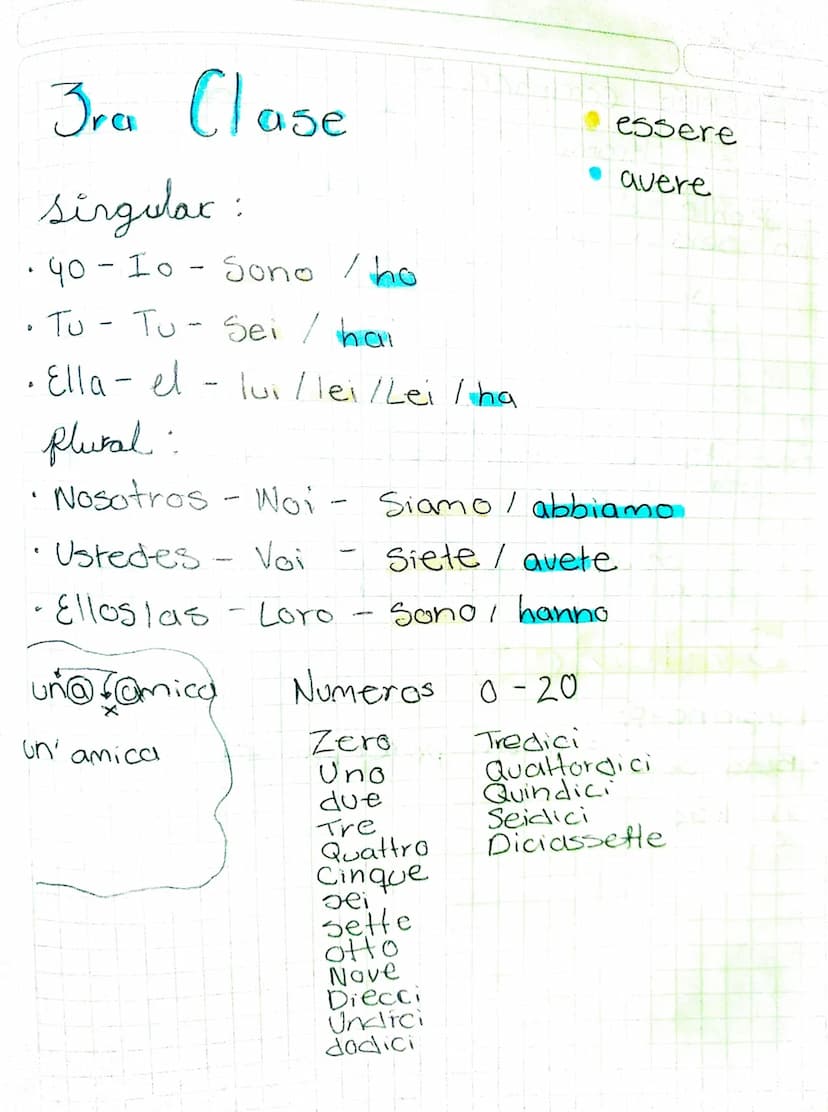 3ra Clase
• essere
• avere
singular :
• yo - Io - Sono / ho
• Tu - Tu - Sei / hai
• Ella - el - lui / lei / Lei / ha
plural :
• Nosotros - Noi - Siamo / abbiamo
• Ustedes - Voi - Siete / avete
• Ellos/as - Loro - Sono / hanno
una amica
x
un' amica
Numeros 0 - 20
Zero
Uno
due
Tre
Quattro
Cinque
sei
sette
otto
Nove
Diecci
Undici
dodici
Tredici
Quattordici
Quindici
Seidici
Diciassette